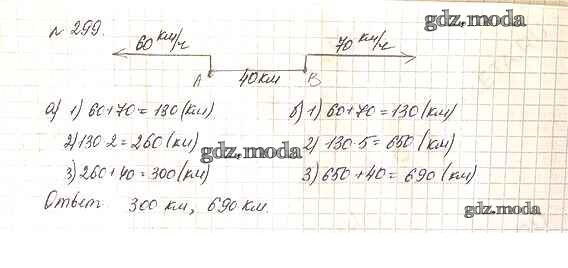 № 299.
gdz.moda
60 км/ч 70 км/ч
A 40 км B
а) 1) 60+70=130(км) б) 1) 60+70=130(км)
2) 130·2=260(км) 2) 130·5=650(км)
gdz.moda
3) 260+40=300(км) 3) 650+40=690(км)
Ответ 300 км, 690 км.
gdz.moda